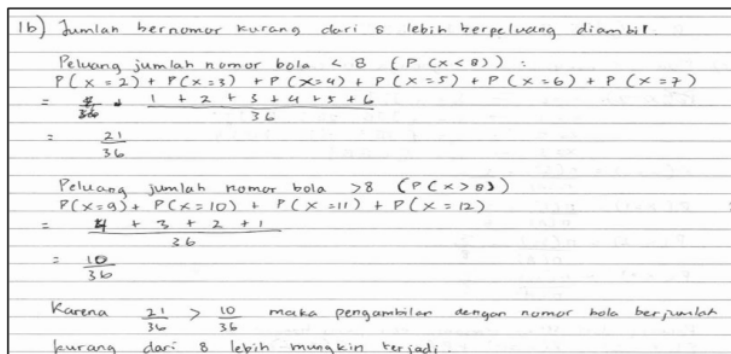 1b) Jumlah bernomor kurang dari 8 lebih berpeluang diambil.
Peluang jumlah nomor bola < 8 (P(x<8)) :
P(x=2) + P(x=3) + P(x=4) + P(x=5) + P(x=6) + P(x=7)
= 1 + 2 + 3 + 4 + 5 + 6
36
= 21
36
Peluang jumlah nomor bola >8 (P(x>8))
P(x=9) + P(x=10) + P(x=11) + P(x=12)
= 4 + 3 + 2 + 1
36
= 10
36
Karena 21/36 > 10/36 maka pengambilan dengan nomor bola berjumlah
kurang dari 8 lebih mungkin terjadi.